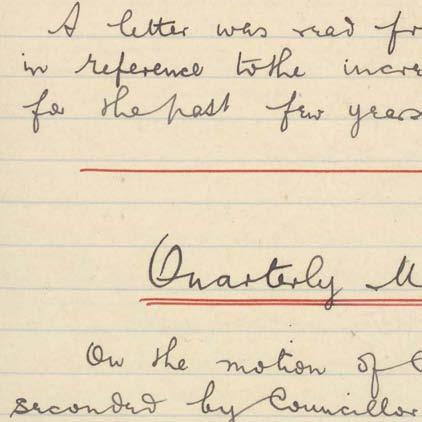 A letter was read fr
in reference to the incre
for the past few years
Quarterly M
On the motion of C
seconded by Councillor